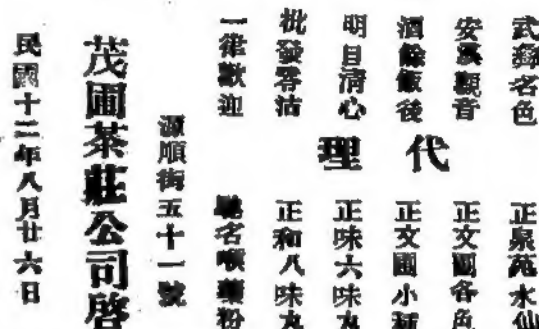 武彝名色
安溪觀音
酒餘飯後
明目清心
批發零沽
一律歡迎
代理
正泉苑水仙
正文圃各色
正文圃小種
正味六味丸
正和八味丸
馳名喉藥粉
源順街五十一號
茂圃茶莊公司啓
民國十二年八月廿六日